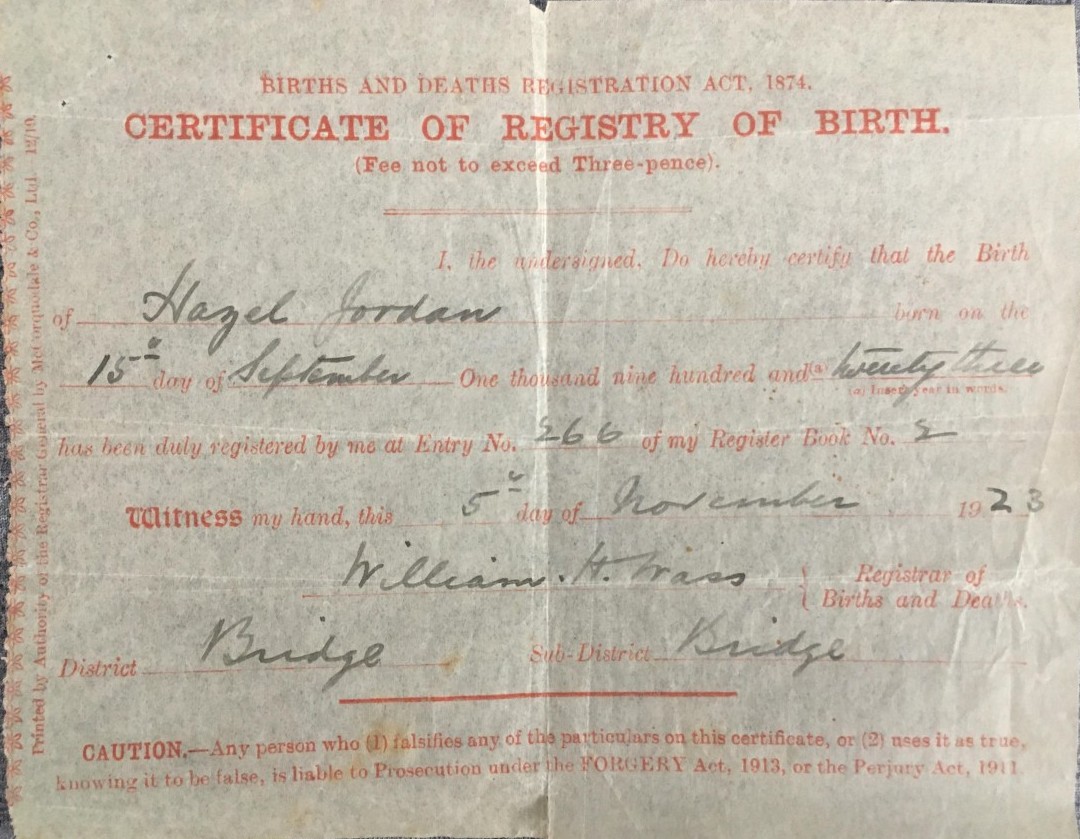 BIRTHS AND DEATHS REGISTRATION ACT, 1874.
CERTIFICATE OF REGISTRY OF BIRTH.
(Fee not to exceed Three-pence).
I, the undersigned, Do hereby certify that the Birth
of Hazel Jordan born on the
15th day of September One thousand nine hundred and (a) twenty three
(a) Insert year in words.
has been duly registered by me at Entry No. 266 of my Register Book No. 2
Witness my hand, this 5th day of November 1923
William. H. Wass Registrar of
Births and Deaths.
District Bridge Sub-District Bridge
CAUTION.—Any person who (1) falsifies any of the particulars on this certificate, or (2) uses it as true,
knowing it to be false, is liable to Prosecution under the FORGERY Act, 1913, or the Perjury Act, 1911
Printed by Authority of the Registrar General by McCorquodale & Co., Ltd. 12/19.